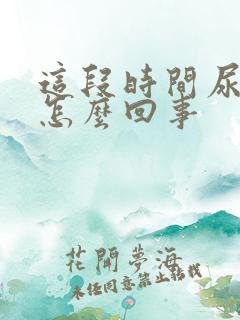 這段時間尿
怎麼回事
花開夢海
未經同意禁止轉載